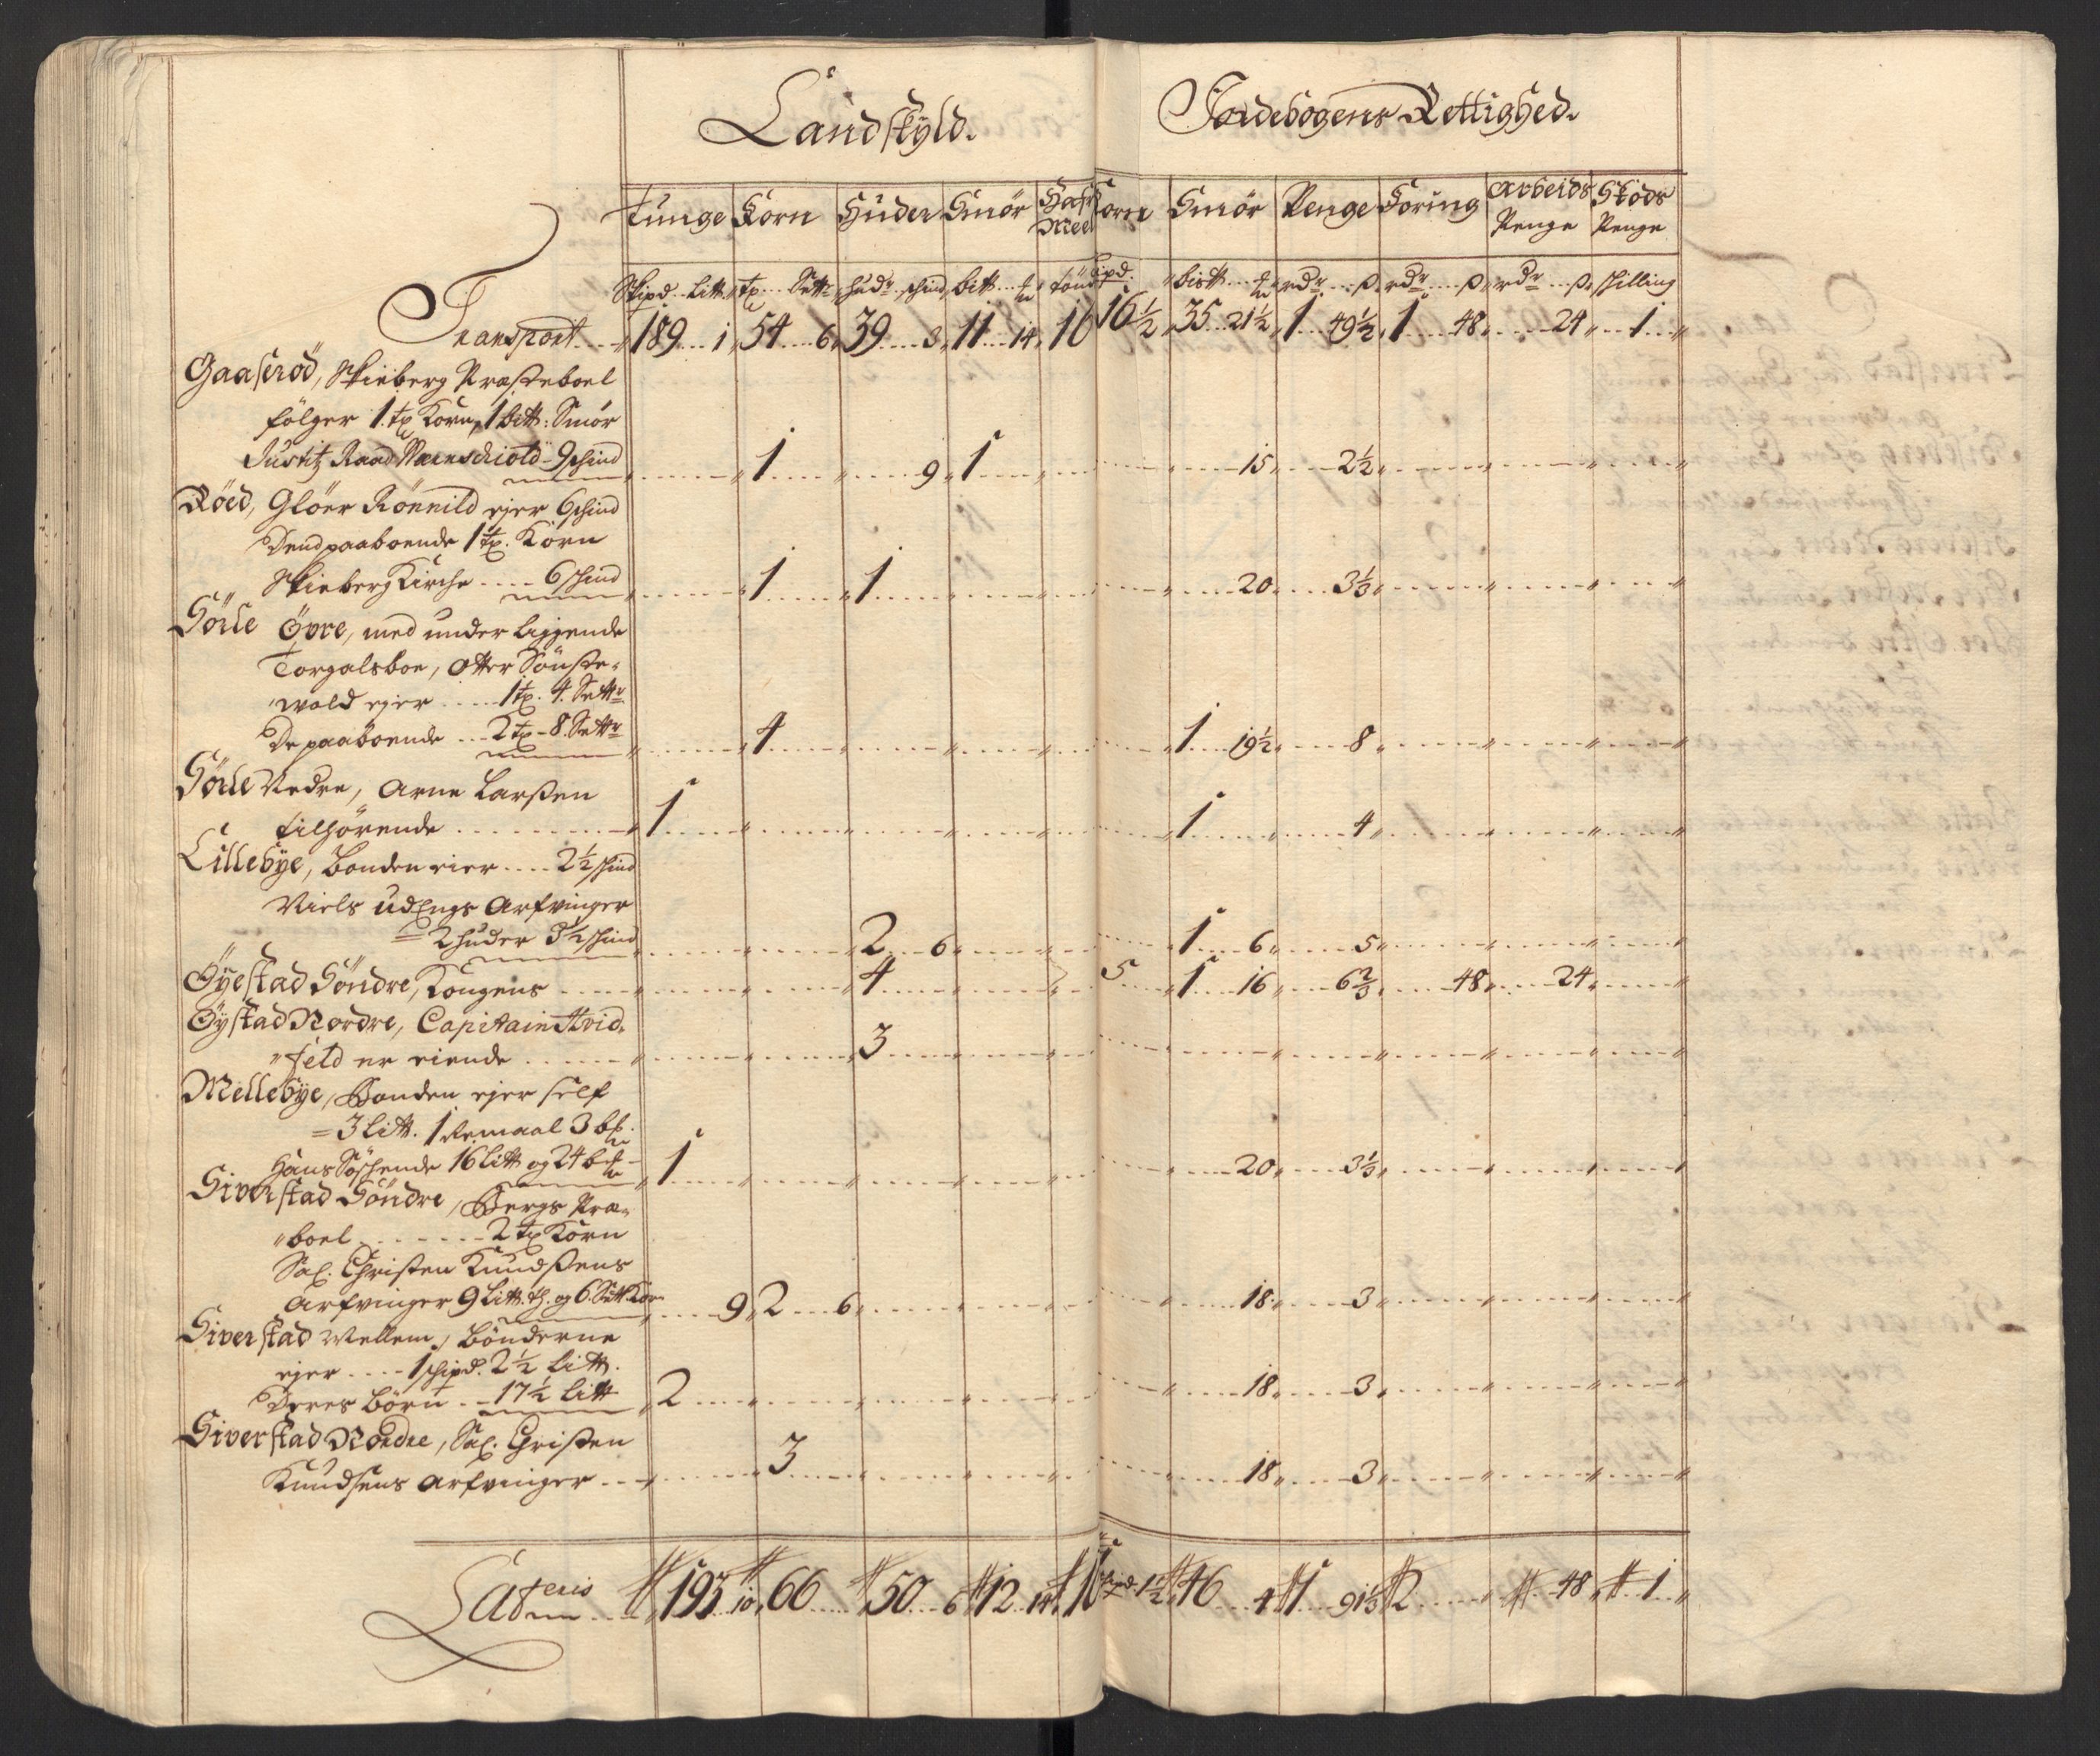 Landskÿld. Jordebogens Rettighed.
Tunge Korn Huder Smör Hafr Meel Korn Smör Penge Foring Arbeids Penge Skods Penge
Skipd Litt tp Sett hudr skind bitt tönd Lipd. bitt rdr ß rdr ß rdr ß skilling
Transport 189 1 54 6 39 3 11 14 10 16½ 35 21½ 1 49½ 1 48 24 1
Gaaseröd, Skieberg Præsteboel
fölger 1 tp Korn, 1 bitt: Smör
Justitz Raad Wærnschiold 9 skind 1 9 1 15 2½
Röed, Glöer Rönnild ejer 6 skind
Dend paaboende 1 tp. Korn
Skieberg Kirche 6 skind 1 1 20 3⅓
Sörle Öfre, med underliggende
Torgalsboe, Otter Sönste-
wold ejer 1 tp. 4. Settr
De paaboende 2 tp 8 Settr 4 1 19½ 8
Sörle Nedre, Arne Larßen
tilhörende 1 1 4
Lillebÿe, Bonden eier 2½ skind
Niels Udengs Arfvinger
2 huder 3½ skind 2 6 1 6 5
Öÿestad Söndre, Kongens 4 5 1 16 6⅔ 48 24
Öÿstad Nordre, Capitain Hvid-
feld er eiende 3
Mellebÿe, Bonden ejer self
3 Litt. 1 Remaal 3 bß.
Hans Söskende 16 Litt og 24 b 1 20 3⅓
Siverstad Söndre, Bergs Præ-
boel 2 tp Korn
Sal. Christen Knudßens
Arfvinger 9 Litt. T. og 6 Sett Kor 9 2 6 18 3
Siverstad Mellem, Bönderne
ejer 1 skipd. 2½ Litt.
Deres Börn 17½ Litt 2 18 3
Siverstad Nordre, Sal. Christen
Knudsens Arfvinger 3 18 3
Lateris 193 10 66 50 6 12 14 10 1½ 46 4 1 91⅓ 2 48 1